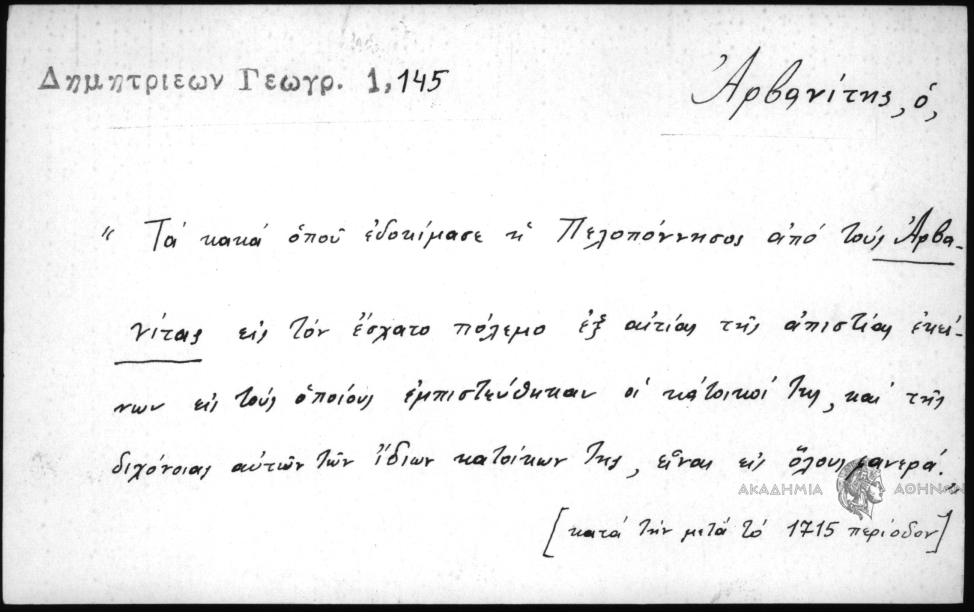 Δημητριεων Γεωγρ. 1,145
Ἀρβανίτης, ὁ,
“ Τά κακά ὁποῦ ἐδοκίμασε ἡ Πελοπόννησος ἀπό τούς Ἀρβα-
νίτας εἰς τόν ἔσχατο πόλεμο ἐξ αἰτίας τῆς ἀπιστίας ἐκεί-
νων εἰς τούς ὁποίους ἐμπιστεύθηκαν οἱ κάτοικοί της, καί τῆς
διχόνοιας αὐτῶν τῶν ἴδιων κατοίκων της, εἶναι εἰς ὅλους φανερά.”
ΑΚΑΔΗΜΙΑ ΑΘΗΝΩΝ
[κατά τήν μετά τό 1715 περίοδον]